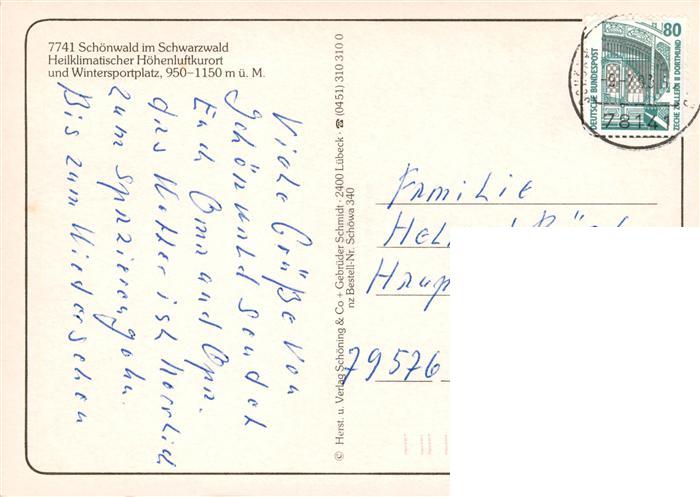 7741 Schönwald im Schwarzwald
Heilklimatischer Höhenluftkurort
und Wintersportplatz, 950–1150 m ü. M.
Viele Grüße von
Schönwald sendet
Euch Oma und Opa.
das Wetter ist herrlich
zum Spazierengehn.
Bis zum Wiedersehen
© Herst. u. Verlag Schöning & Co + Gebrüder Schmidt · 2400 Lübeck · ☎ (0451) 310 310 0
nz Bestell-Nr. Schöwa 340
80
DEUTSCHE BUNDESPOST
ZECHE ZOLLERN II DORTMUND
7814
Familie
Hel
Haup
79576